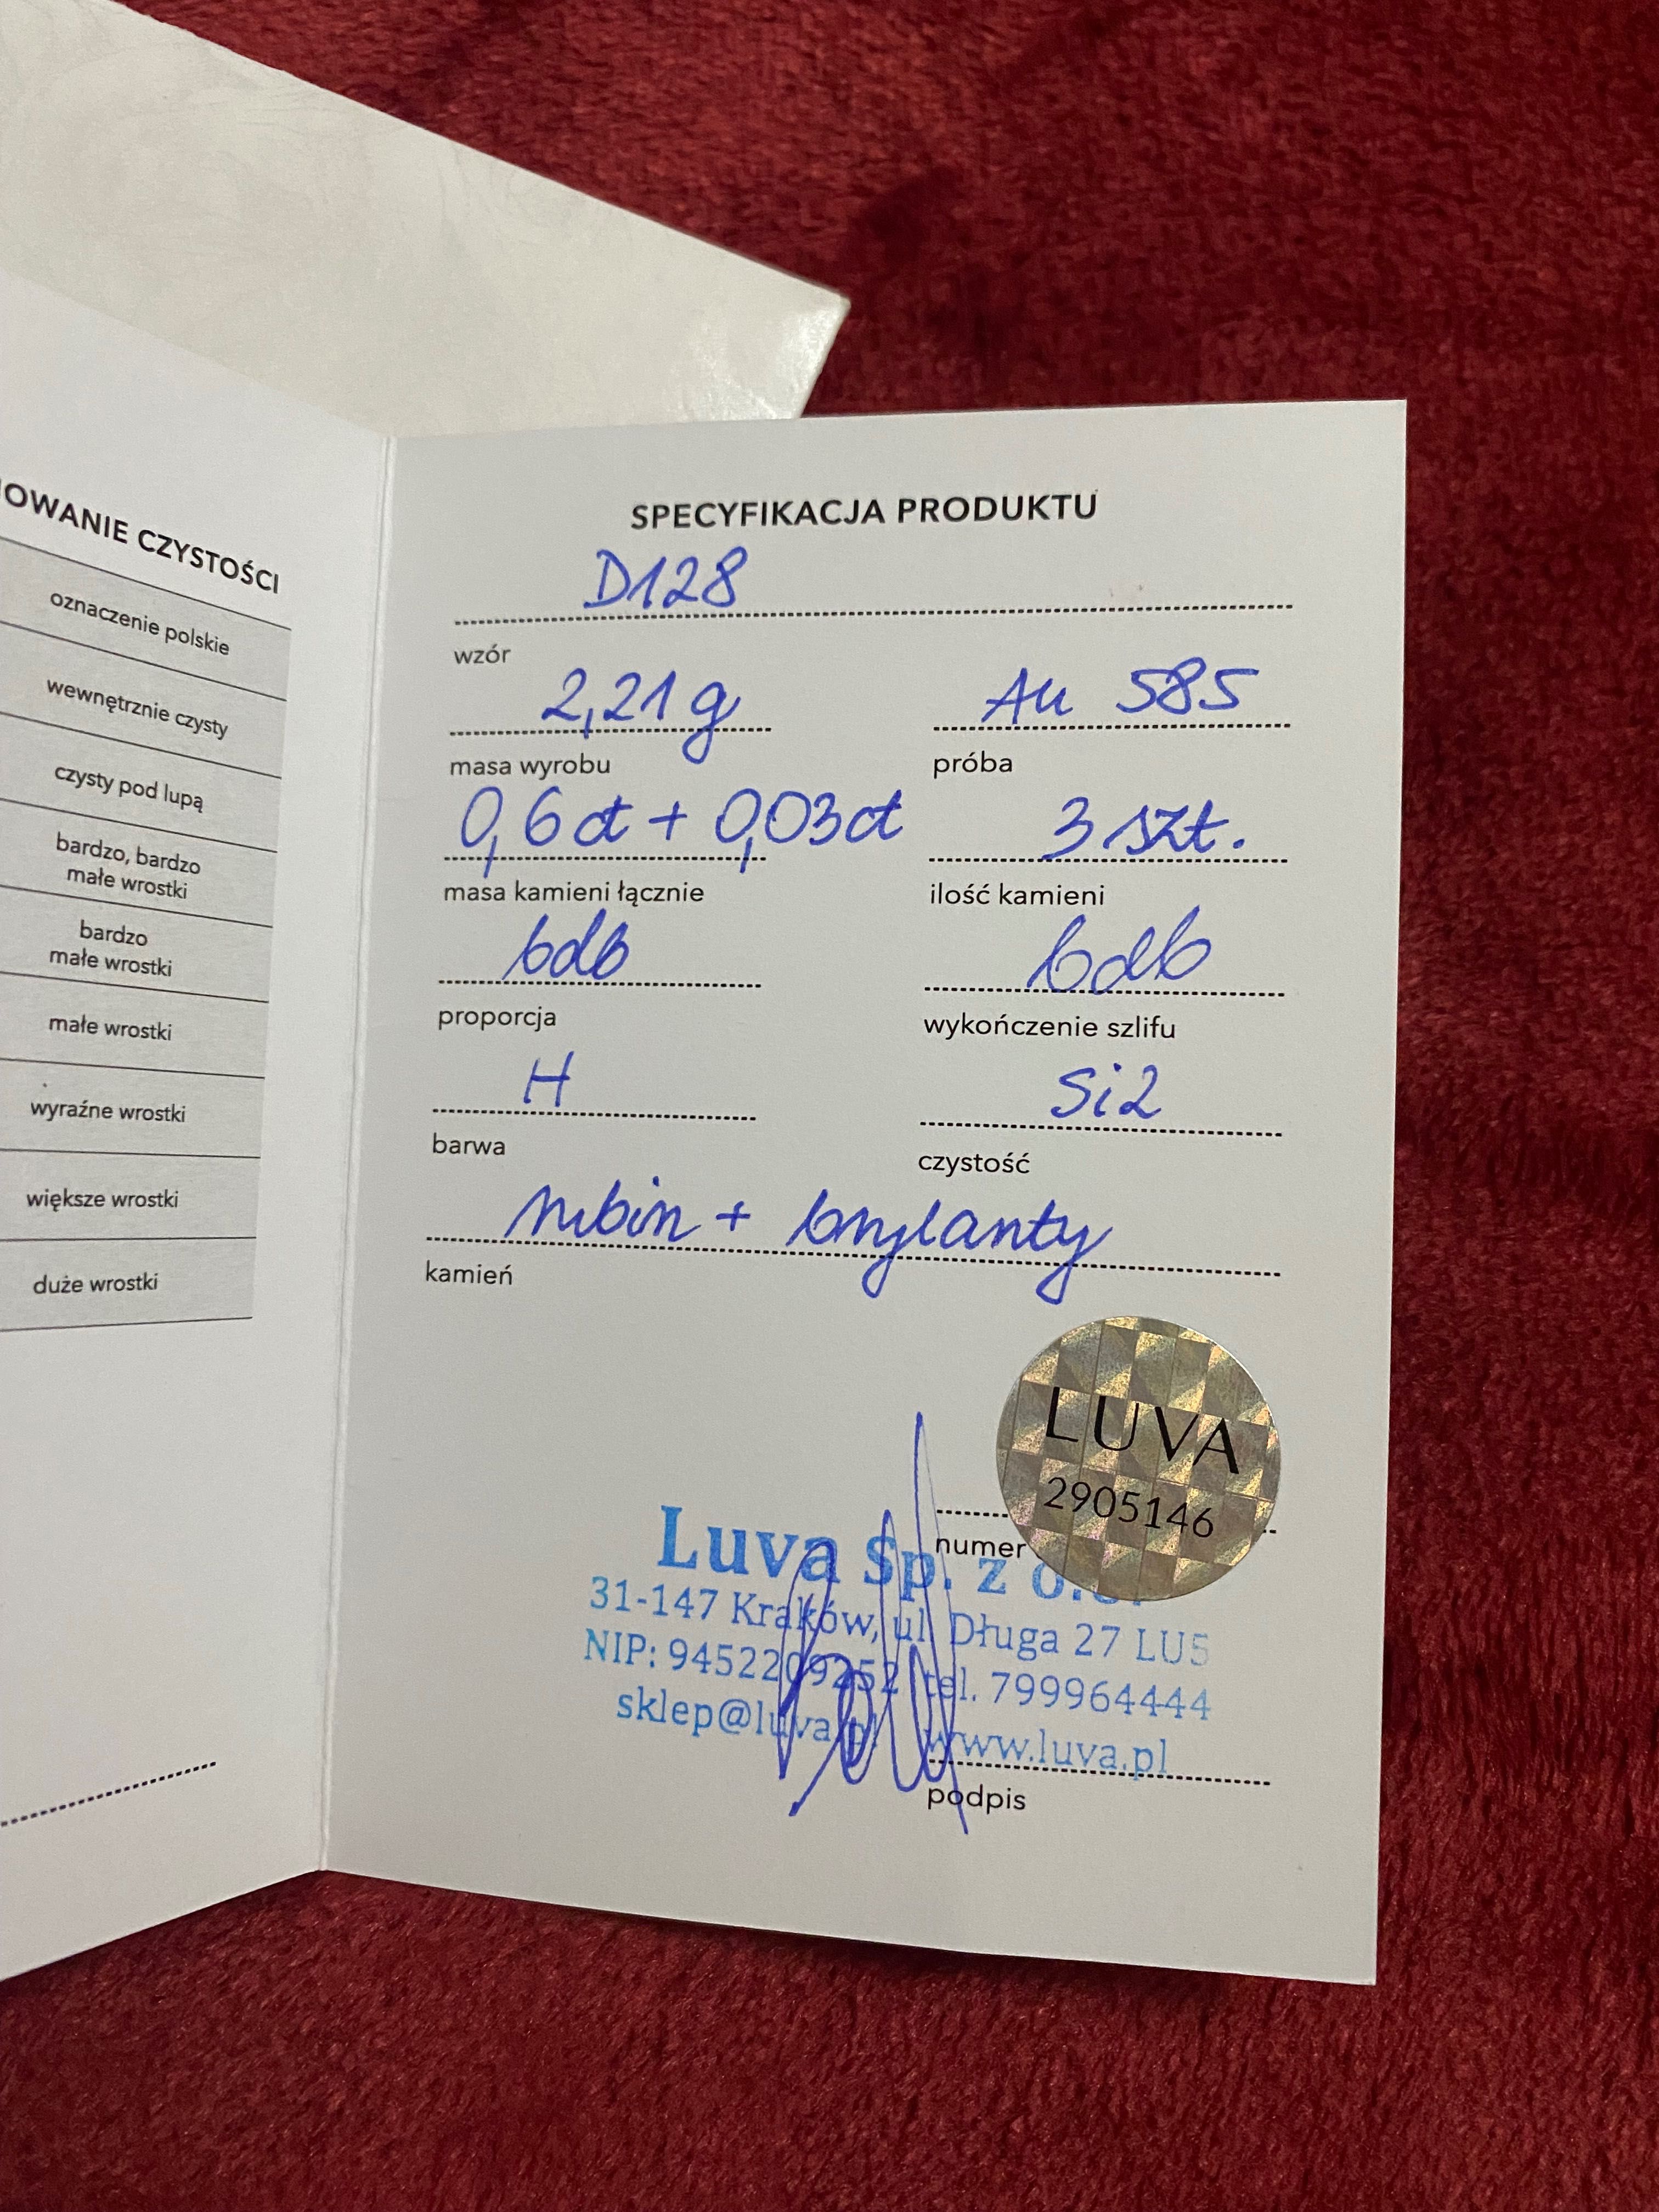 OWANIE CZYSTOŚCI
oznaczenie polskie
wewnętrznie czysty
czysty pod lupą
bardzo, bardzo
małe wrostki
bardzo
małe wrostki
małe wrostki
wyraźne wrostki
większe wrostki
duże wrostki
SPECYFIKACJA PRODUKTU
D128
wzór
2,21 g Au 585
masa wyrobu próba
0,6 ct + 0,03 ct 3 szt.
masa kamieni łącznie ilość kamieni
bdb bdb
proporcja wykończenie szlifu
H Si2
barwa czystość
rubin + brylanty
kamień
LUVA
2905146
numer
Luva Sp. z o.o.
31-147 Kraków, ul. Długa 27 LU5
NIP: 9452209252 tel. 799964444
sklep@luva.pl www.luva.pl
podpis